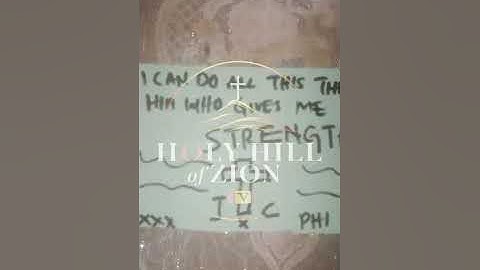 I CAN DO ALL THIS
HIM WHO GIVES ME
STRENGTH
HOLY HILL
of ZION
xxx
PHI